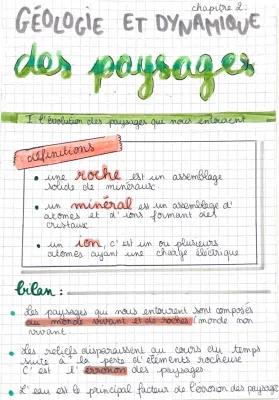 chapitre 2:
GÉOLOGIE ET DYNAMIQUE
des paysages
I l'évolution des paysages qui nous entourent
définitions
• une roche est un assemblage
solide de minéraux
• un minéral est un assemblage d'
atomes et d'ions formant des
cristaux
• un ion, c'est un ou plusieurs
atomes ayant une charge électrique
bilan :
• les paysages qui nous entourent sont composés
du monde vivant et de roches (monde non
vivant
• les reliefs disparaissent au cours du temps
suite à la perte d'éléments rocheuse
C'est l'érosion des paysages
• L'eau est le principal facteur de l'érosion des paysage